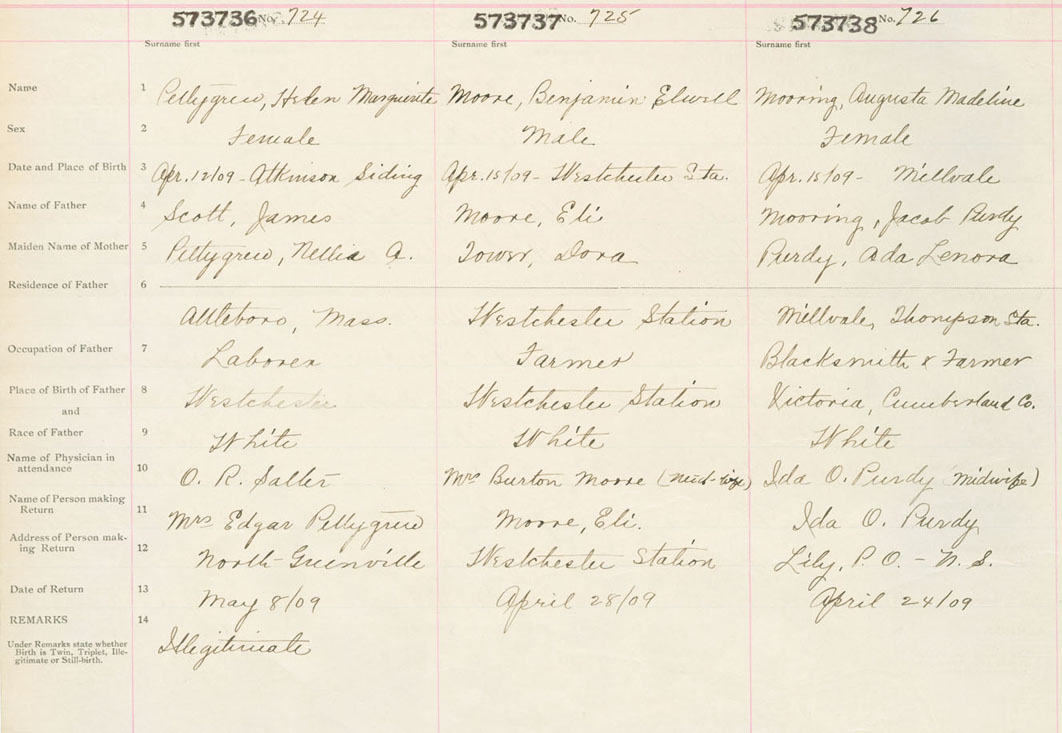 573736 No. 724 573737 No. 725 573738 No. 726
Surname first Surname first Surname first
Name 1 Pettygrew, Helen Marguerite Moore, Benjamin Elwell Mooring, Augusta Madeline
Sex 2 Female Male Female
Date and Place of Birth 3 Apr. 12/09 - Atkinson Siding Apr. 15/09 - Westchester Sta. Apr. 15/09 - Millvale
Name of Father 4 Scott, James Moore, Eli Mooring, Jacob Purdy
Maiden Name of Mother 5 Pettygrew, Nellie A. Tower, Dora Purdy, Ada Lenora
Residence of Father 6
Attleboro, Mass. Westchester Station Millvale, Thompson Sta.
Occupation of Father 7 Laborer Farmer Blacksmith & Farmer
Place of Birth of Father 8 Westchester Westchester Station Victoria, Cumberland Co.
and
Race of Father 9 White White White
Name of Physician in
attendance 10 O. R. Salter Mrs Burton Moore (mid-wife) Ida O. Purdy (midwife)
Name of Person making
Return 11 Mrs Edgar Pettygrew Moore, Eli. Ida O. Purdy
Address of Person mak-
ing Return 12 North Greenville Westchester Station Lily, P. O. - N. S.
Date of Return 13 May 8/09 April 28/09 April 24/09
REMARKS 14
Under Remarks state whether
Birth is Twin, Triplet, Ille-
gitimate or Still-birth. Illegitimate